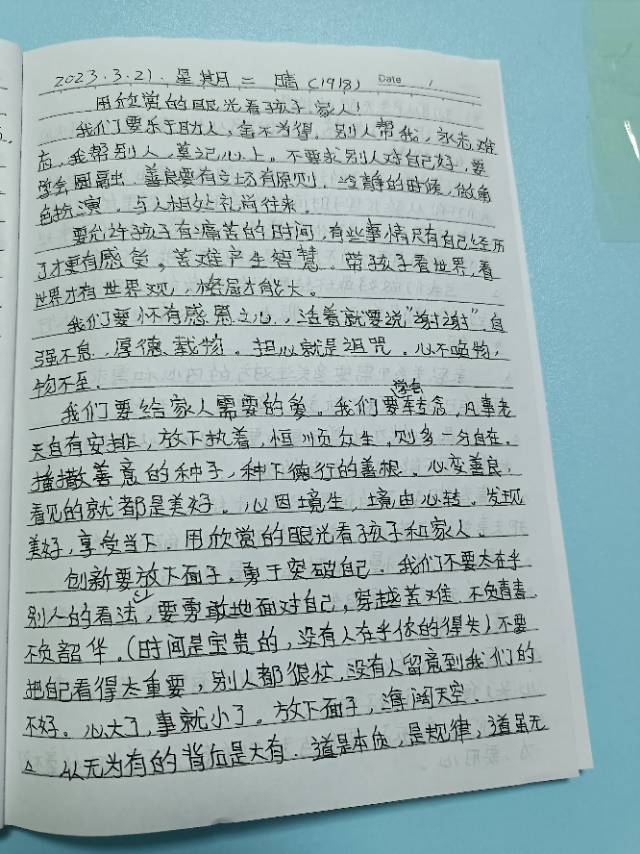 2023.3.21.星期二 晴(1918) Date /
用欣赏的眼光看孩子、家人!
我们要乐于助人,舍不为得。别人帮我,永志难
忘,我帮别人,莫记心上。不要求别人对自己好,要
学会圆融出。善良要有立场有原则,冷静的时候,做角
色扮演。与人相处礼尚往来。
要允许孩子有痛苦的时间,有些事情只有自己经历
了才更有感觉,苦难产生智慧。带孩子看世界,看
世界才有世界观,格局才能大。
我们要怀有感恩之心,活着就要说"谢谢"自
强不息,厚德载物。担心就是诅咒。心不唤物,
物不至。
我们要给家人需要的爱。我们要学会转念,凡事老
天自有安排,放下执着,恒顺众生,则多一分自在。
播撒善意的种子,种下德行的善根。心变善良,
看见的就都是美好。心因境生,境由心转。发现
美好,享受当下。用欣赏的眼光看孩子和家人。
创新要放下面子,勇于突破自己。我们不要太在乎
别人的看法,要勇敢地面对自己,穿越苦难。不负青春
不负韶华。(时间是宝贵的,没有人在乎你的得失)不要
把自己看得太重要,别人都很忙,没有人留意到我们的
不好。心大了,事就小了。放下面子,海阔天空。
△ 从无为有的背后是大有。道是本质,是规律,道虽无